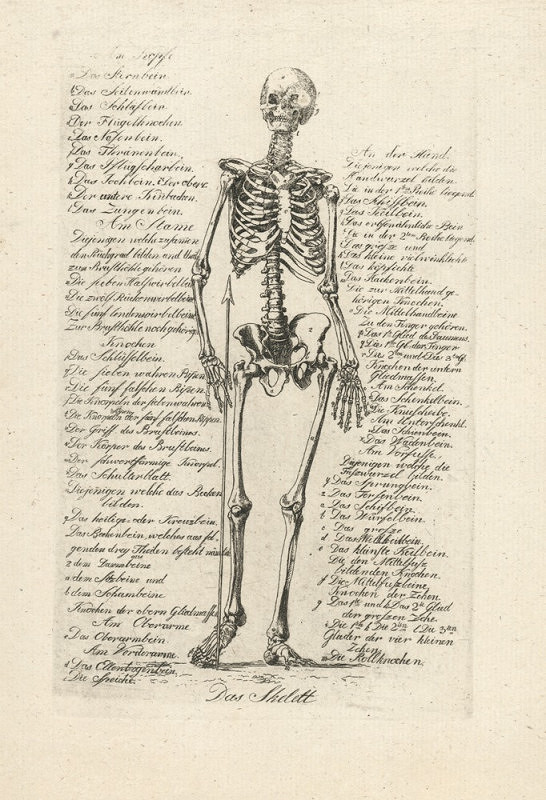 a Das Stirnbein.
b Das Seitenwandbein.
Das Schlafbein.
Der Flügelknochen.
e Das Nasenbein.
f Das Thränenbein.
g Das Pflugscharbein.
h Das Jochbein. i Der obere
k Der untere Kinbacken.
l Das Zungenbein.
Am Stame
Diejenigen welche zusammen
den Rückgrad bilden und
zur Brusthöhle gehören
Die sieben Halswirbelbeine
Die zwölf Rückenwirbelbeine
Die fünf Lendenwirbelbeine
Zur Brusthöhle noch gehörige
Knochen
Das Schlüsselbein.
Die sieben wahren Rippen
Die fünf falschen Ripen.
Die Knorpeln der sieben wahren
Die Knorpeln der fünf falschen Rippen.
Der Griff des Brustbeines.
Der Körper des Brustbeines
Der schwertförmige Knorpel.
Das Schulterblatt.
Diejenigen welche das Becken
bilden.
Das heilige oder Kreuzbein.
Das Beckenbein, welches aus fol
genden drey Theilen besteht
z dem Darmbeine
a dem Sitzbeine und
b dem Schambeine
Knochen der obern Gliedmassen
Am Oberarme
c Das Oberarmbein
Am Vorderarme.
d Das Ellenbogenbein.
Die Speiche.
An der Hand.
Diejenigen welche die
Handwurzel bilden.
Die in der 1ten Reihe liegend.
Das Schiffbein.
Das Keilbein.
Das erbsenähnliche Bein
Die in der 2ten Reihe liegend
Das grosse und
Das kleine vielwinklichte
Das köpfichte
Das Hackenbein.
Die zur Mittelhand ge-
hörigen Knochen.
Die Mittelhandbeine
Zu den Finger gehören.
p Das 1te Glied des Daumens.
q Das 1te Gl. der Finger
r Die 2ten und Die 3ten G.
Knochen der untern
Gliedmassen.
Am Schenkel.
Das Schenkelbein.
Die Kniescheibe.
Am Unterschenkl.
Das Schienbein.
x Das Wadenbein.
Am Vorfusse.
Diejenigen welche die
Fußwurzel bilden.
y Das Sprungbein.
z Das Fersenbein.
a Das Schifbein.
b Das Würfelbein.
c Das große
d Das
e Das kleinste Keilbein.
Die den Mittelfuß
bildenden Knochen.
f Die Mittelfußbeine.
Knochen der Zehen.
g Das 1te und h Das 2te Glied
der großen Zehe.
Die 1te k Die 2ten l Die 3ten
Glieder der vier kleinen
Zehen.
Die Rollknochen.
Das Skelett